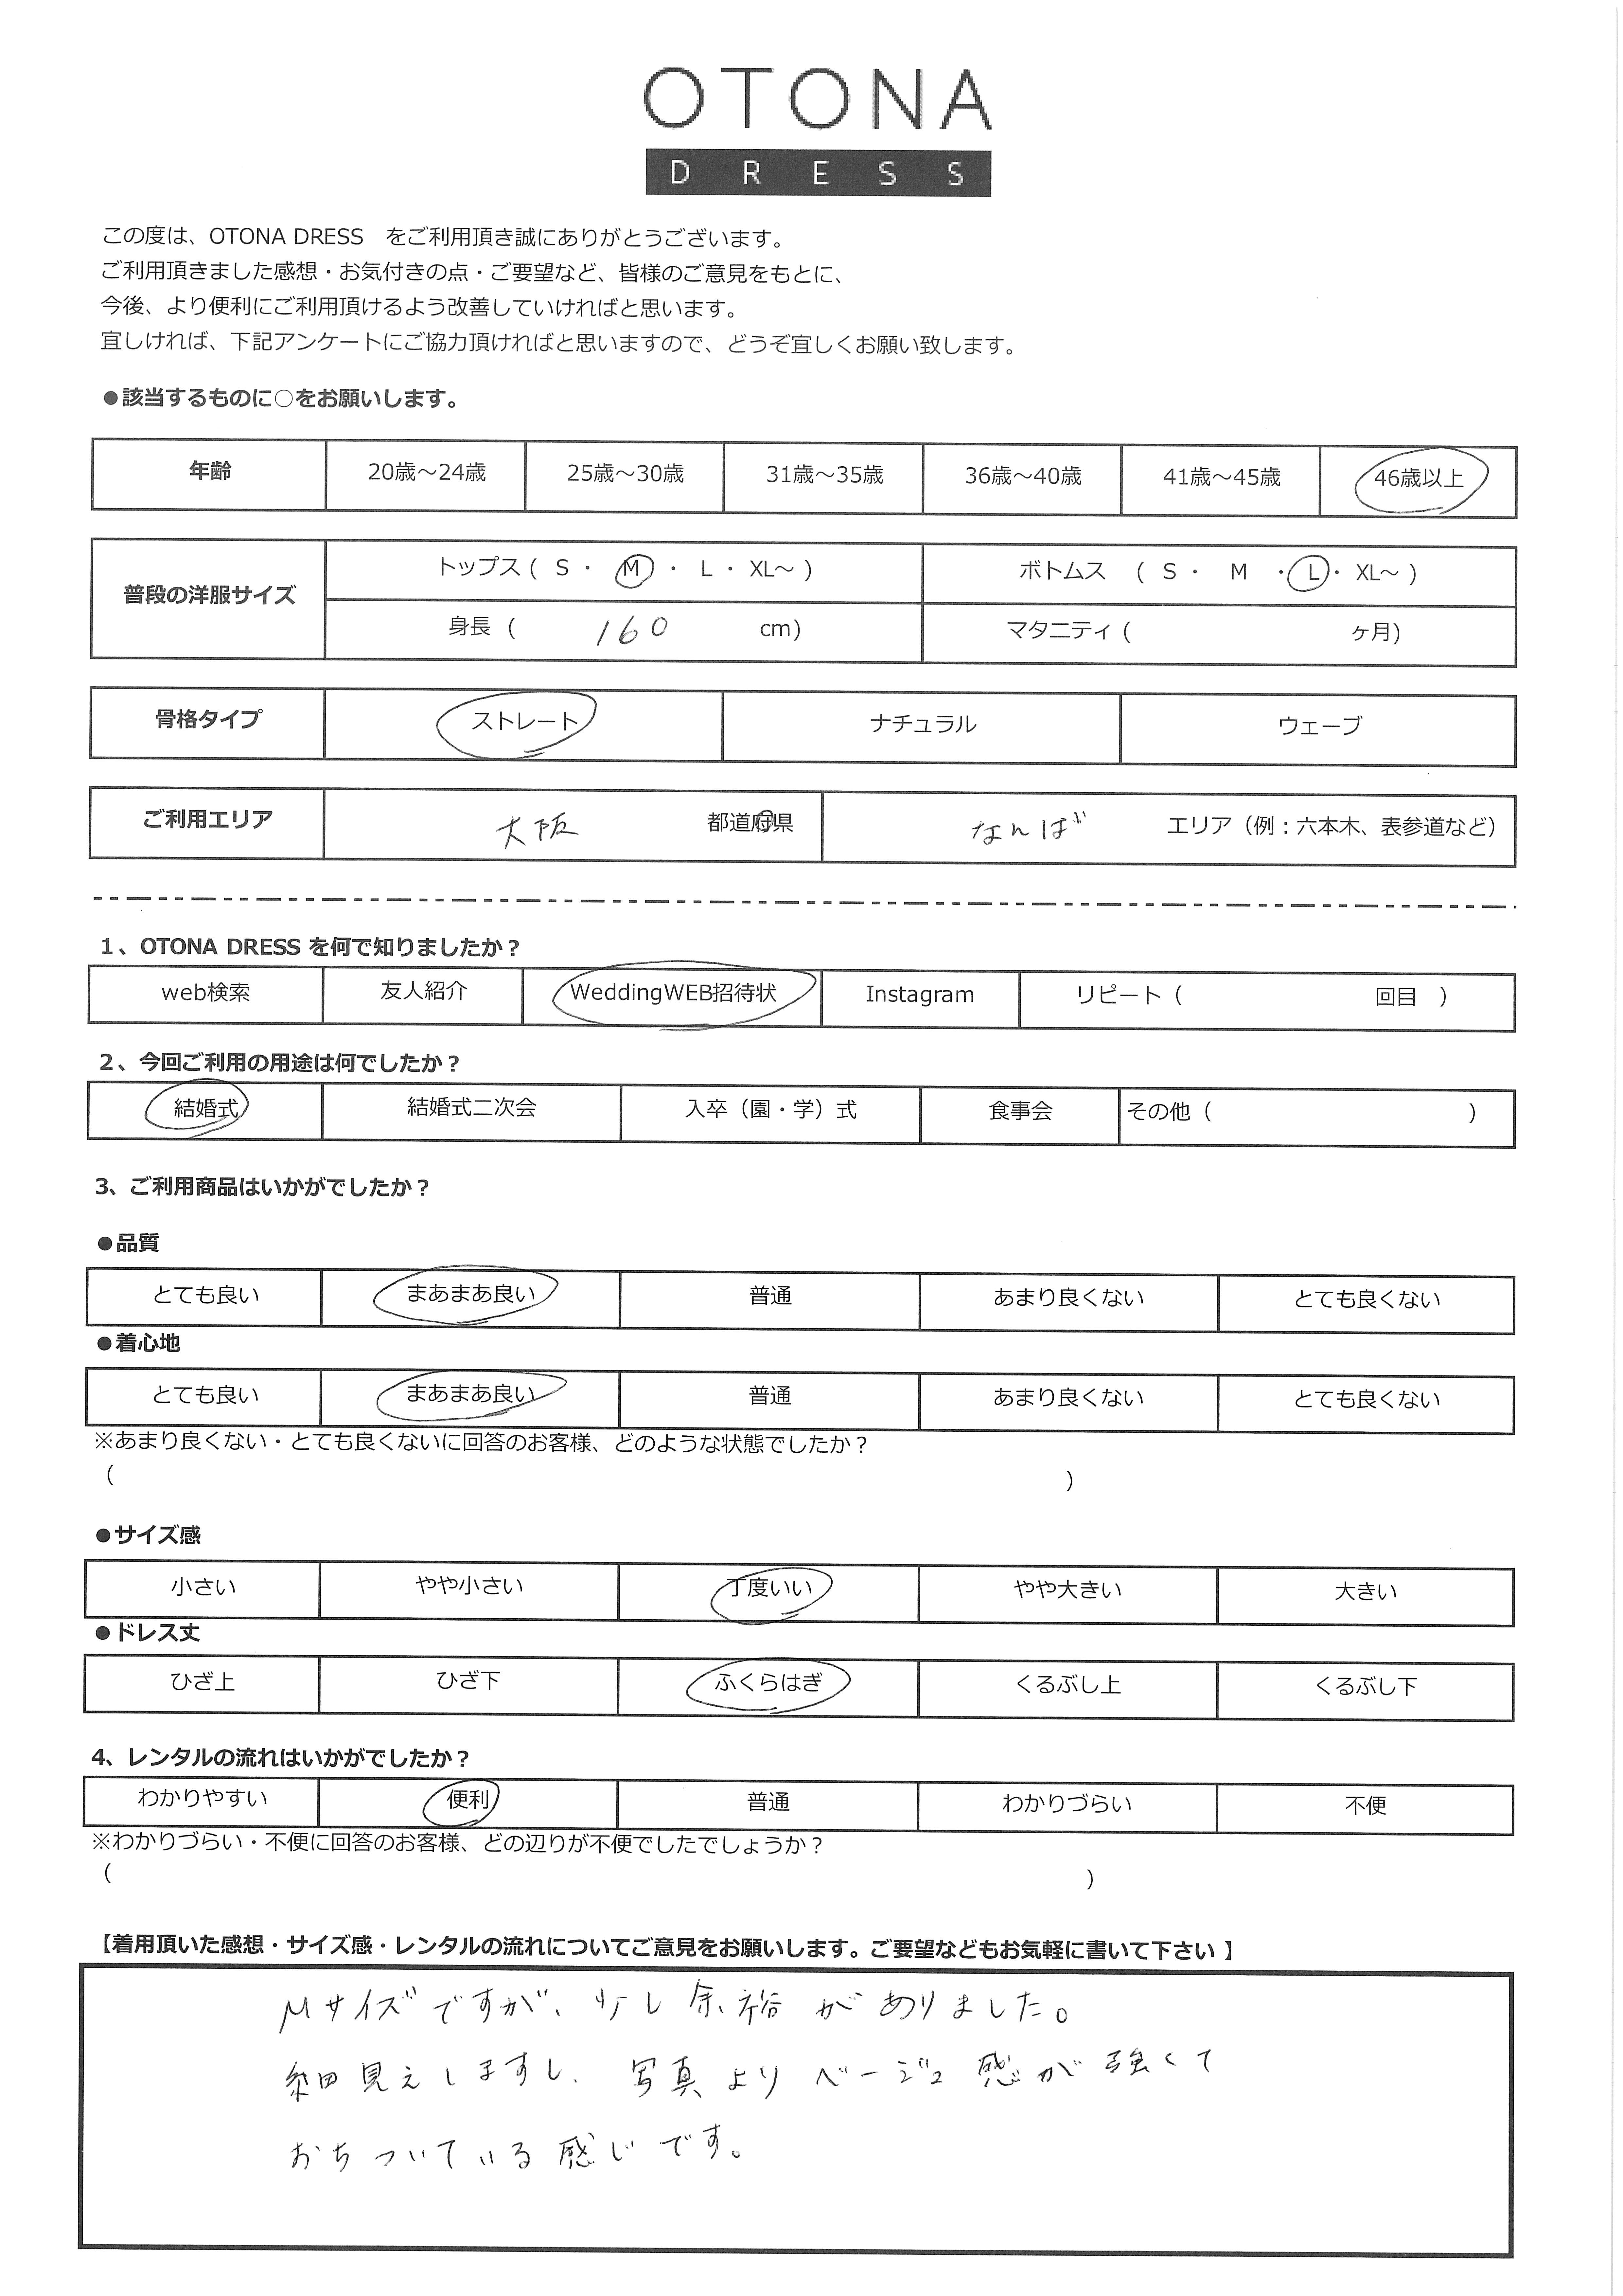 OTONA
DRESS
この度は、OTONA DRESS をご利用頂き誠にありがとうございます。
ご利用頂きました感想・お気付きの点・ご要望など、皆様のご意見をもとに、
今後、より便利にご利用頂けるよう改善していければと思います。
宜しければ、下記アンケートにご協力頂ければと思いますので、どうぞ宜しくお願い致します。
●該当するものに○をお願いします。
年齢 20歳～24歳 25歳～30歳 31歳～35歳 36歳～40歳 41歳～45歳 46歳以上
普段の洋服サイズ トップス ( S ・ M ・ L ・ XL～ ) ボトムス ( S ・ M ・ L ・ XL～ )
身長 ( 160 cm) マタニティ ( ヶ月)
骨格タイプ ストレート ナチュラル ウェーブ
ご利用エリア 大阪 都道府県 なんば エリア（例：六本木、表参道など）
1、OTONA DRESS を何で知りましたか？
web検索 友人紹介 WeddingWEB招待状 Instagram リピート（ 回目 ）
2、今回ご利用の用途は何でしたか？
結婚式 結婚式二次会 入卒（園・学）式 食事会 その他（ ）
3、ご利用商品はいかがでしたか？
●品質
とても良い まあまあ良い 普通 あまり良くない とても良くない
●着心地
とても良い まあまあ良い 普通 あまり良くない とても良くない
※あまり良くない・とても良くないに回答のお客様、どのような状態でしたか？
（ ）
●サイズ感
小さい やや小さい 丁度いい やや大きい 大きい
●ドレス丈
ひざ上 ひざ下 ふくらはぎ くるぶし上 くるぶし下
4、レンタルの流れはいかがでしたか？
わかりやすい 便利 普通 わかりづらい 不便
※わかりづらい・不便に回答のお客様、どの辺りが不便でしたでしょうか？
（ ）
【着用頂いた感想・サイズ感・レンタルの流れについてご意見をお願いします。ご要望などもお気軽に書いて下さい】
Mサイズですが、少し余裕がありました。
細見えしますし、写真よりベージュ感が強くて
おちついている感じです。